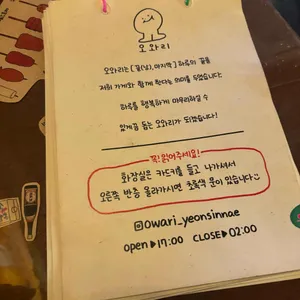 오와리
오와리는 [끝(남), 마지막] 하루의 끝을
저희 가게와 함께 한다는 의미를 두었습니다.
하루를 행복하게 마무리하실 수
있게끔 돕는 오와리가 되겠습니다!
꼭! 읽어주세요!
화장실은 카드키를 들고 나가셔서
오른쪽 반층 올라가시면 초록색 문이 있습니다
@owari_yeonsinnae
open▶17:00 CLOSE▶02:00